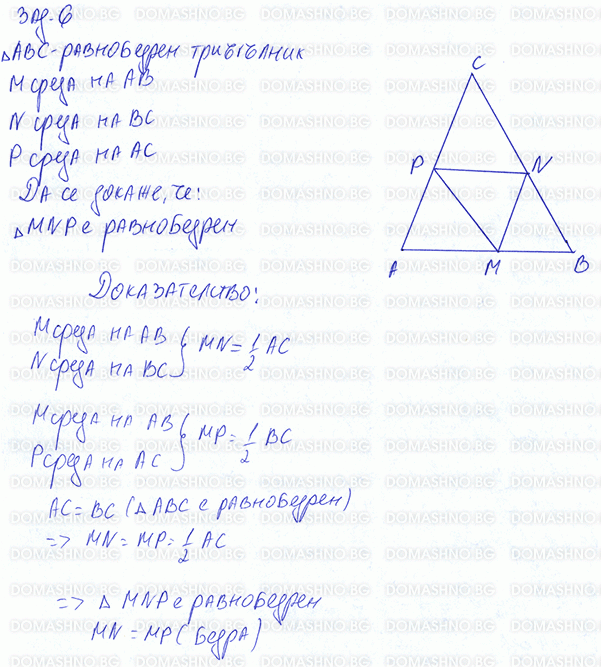 Зад. 6
△ABC - равнобедрен триъгълник
M среда на AB
N среда на BC
P среда на AC
Да се докаже, че:
△MNP е равнобедрен
C
P
N
A
M
B
Доказателство:
M среда на AB
N среда на BC } MN = 1/2 AC
M среда на AB
P среда на AC } MP = 1/2 BC
AC = BC (△ABC е равнобедрен)
=> MN = MP = 1/2 AC
=> △ MNP е равнобедрен
MN = MP (бедра)
DOMASHNO.BG